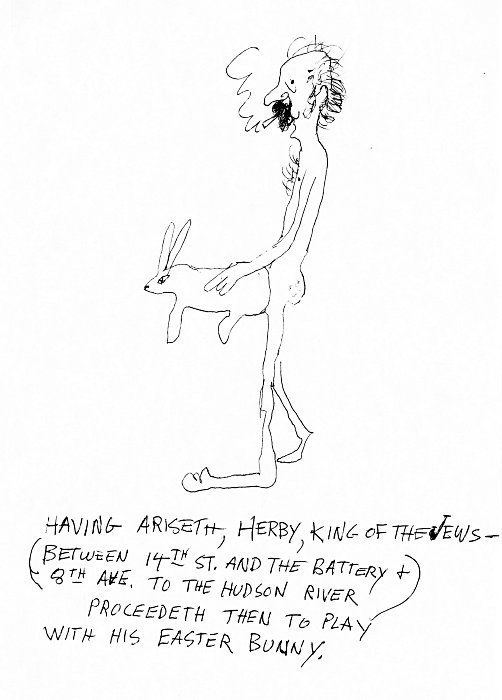 HAVING ARISETH, HERBY, KING OF THE JEWS–
(BETWEEN 14TH ST. AND THE BATTERY +
8TH AVE. TO THE HUDSON RIVER)
PROCEEDETH THEN TO PLAY
WITH HIS EASTER BUNNY.